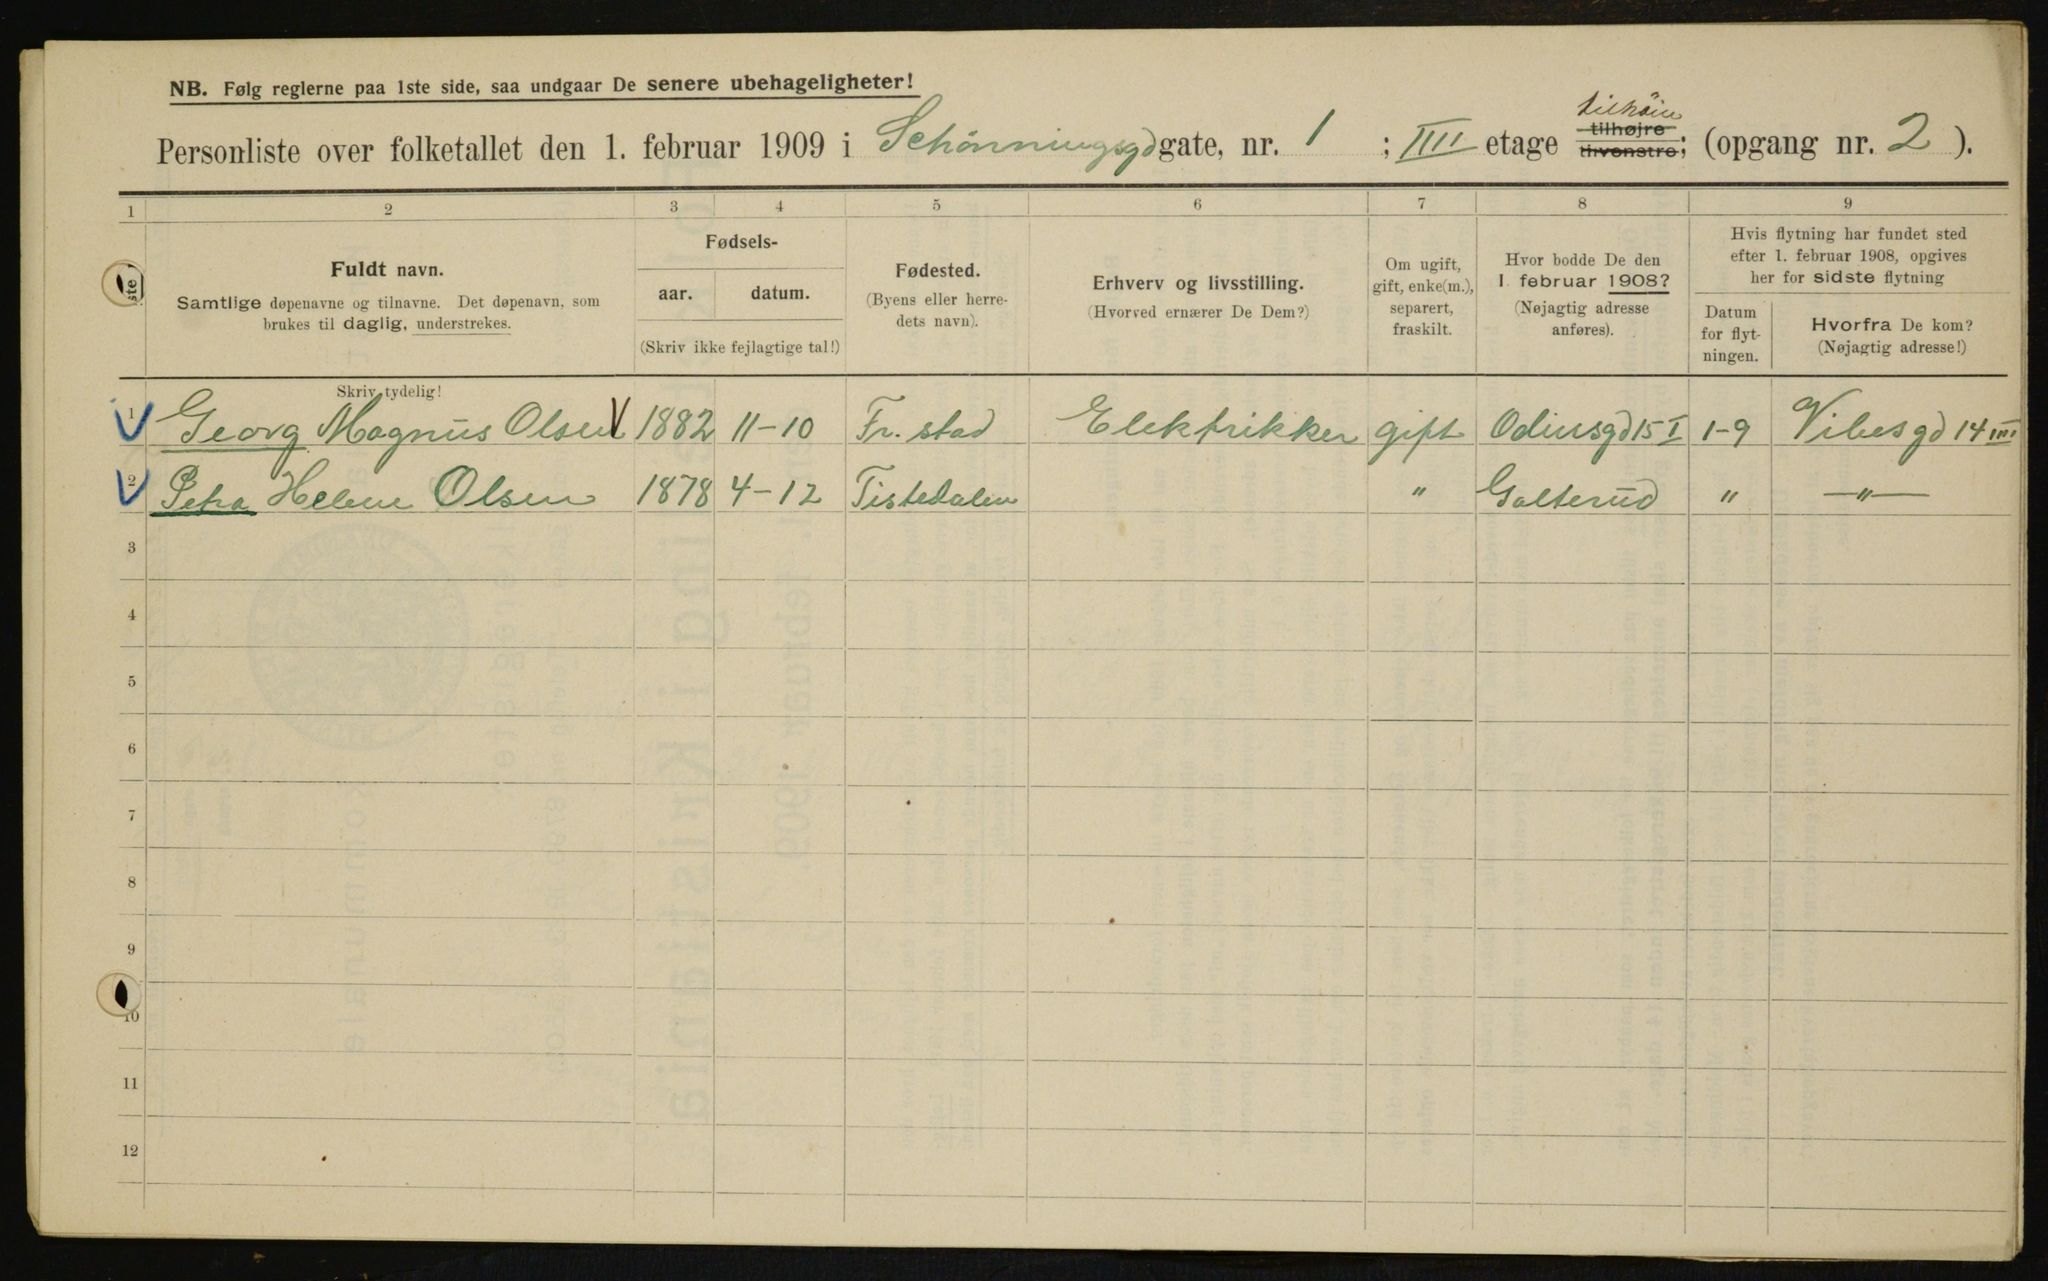 NB. Følg reglerne paa 1ste side, saa undgaar De senere ubehageligheter!
tilhöire
Personliste over folketallet den 1. februar 1909 i Schönningsgd gate, nr. 1 ; IIII etage tilhøjre tilvenstre; (opgang nr. 2 ).
1 2 3 4 5 6 7 8 9
Fuldt navn.
Samtlige døpenavne og tilnavne. Det døpenavn, som
brukes til daglig, understrekes.
Skriv tydelig!
Fødsels-
aar. datum.
(Skriv ikke fejlagtige tal!)
Fødested.
(Byens eller herre-
dets navn).
Erhverv og livsstilling.
(Hvorved ernærer De Dem?)
Om ugift,
gift, enke(m.),
separert,
fraskilt.
Hvor bodde De den
1. februar 1908?
(Nøjagtig adresse
anføres).
Hvis flytning har fundet sted
efter 1. februar 1908, opgives
her for sidste flytning
Datum
for flyt-
ningen.
Hvorfra De kom?
(Nøjagtig adresse!)
1 Georg Magnus Olsen 1882 11-10 Fr. stad Elektrikker gift Odinsgd 15 I 1-9 Vibesgd 14 III
2 Petra Helene Olsen 1878 4-12 Tistedalen " Galterud " —"—
3
4
5
6
7
8
9
10
11
12